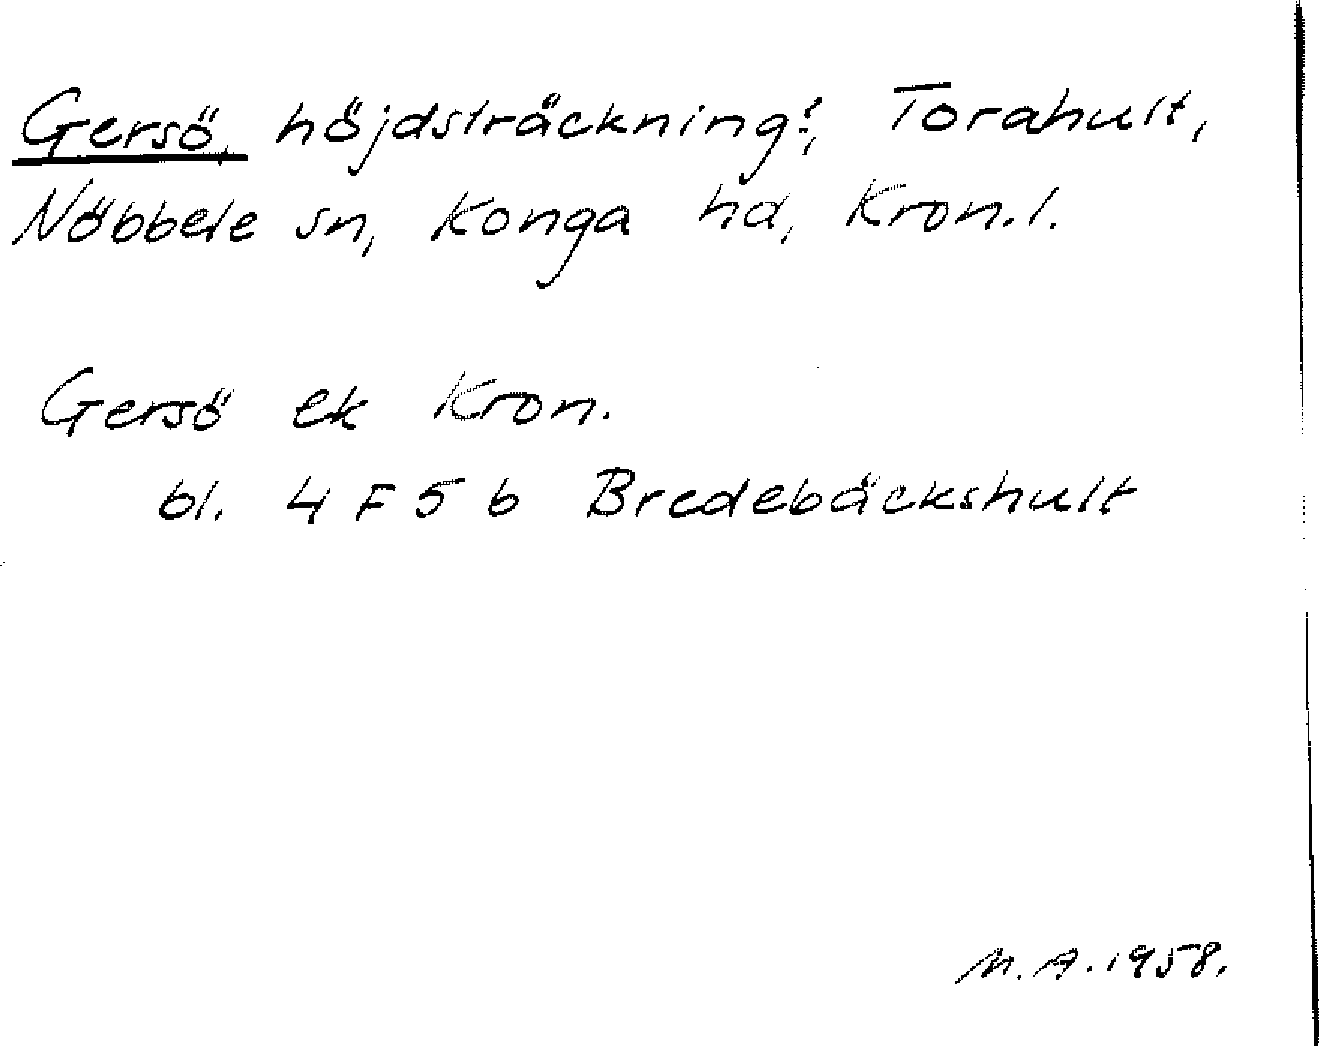 Gersö, höjdsträckning?, Torahult,
Nöbbele sn, Konga hd, Kron.l.
Gersö ek Kron.
bl. 4 F 5 b Bredebäckshult
M.A. 1958.